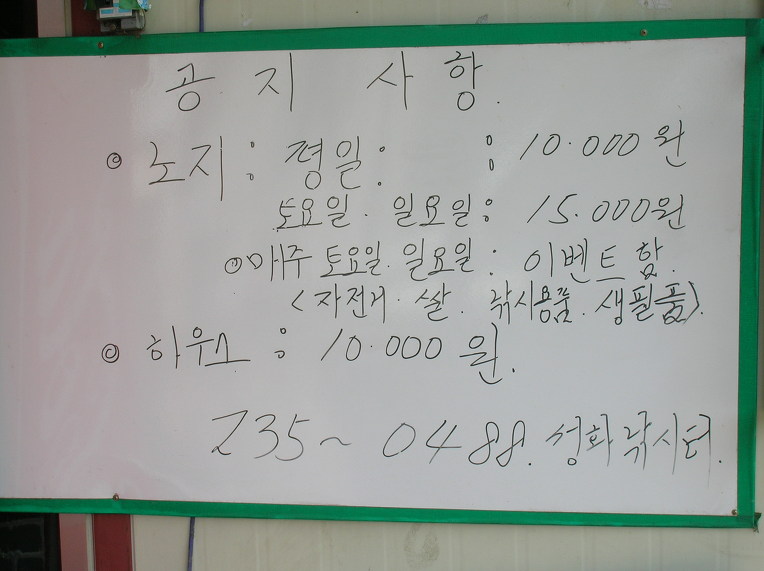 공지사항.
◎ 노지 : 평일 : : 10.000원
토요일. 일요일 : 15.000원
○매주 토요일. 일요일 : 이벤트함.
<자전거. 쌀. 낚시용품. 생필품>.
◎ 하우스 : 10.000원.
235~0488. 성화낚시터.